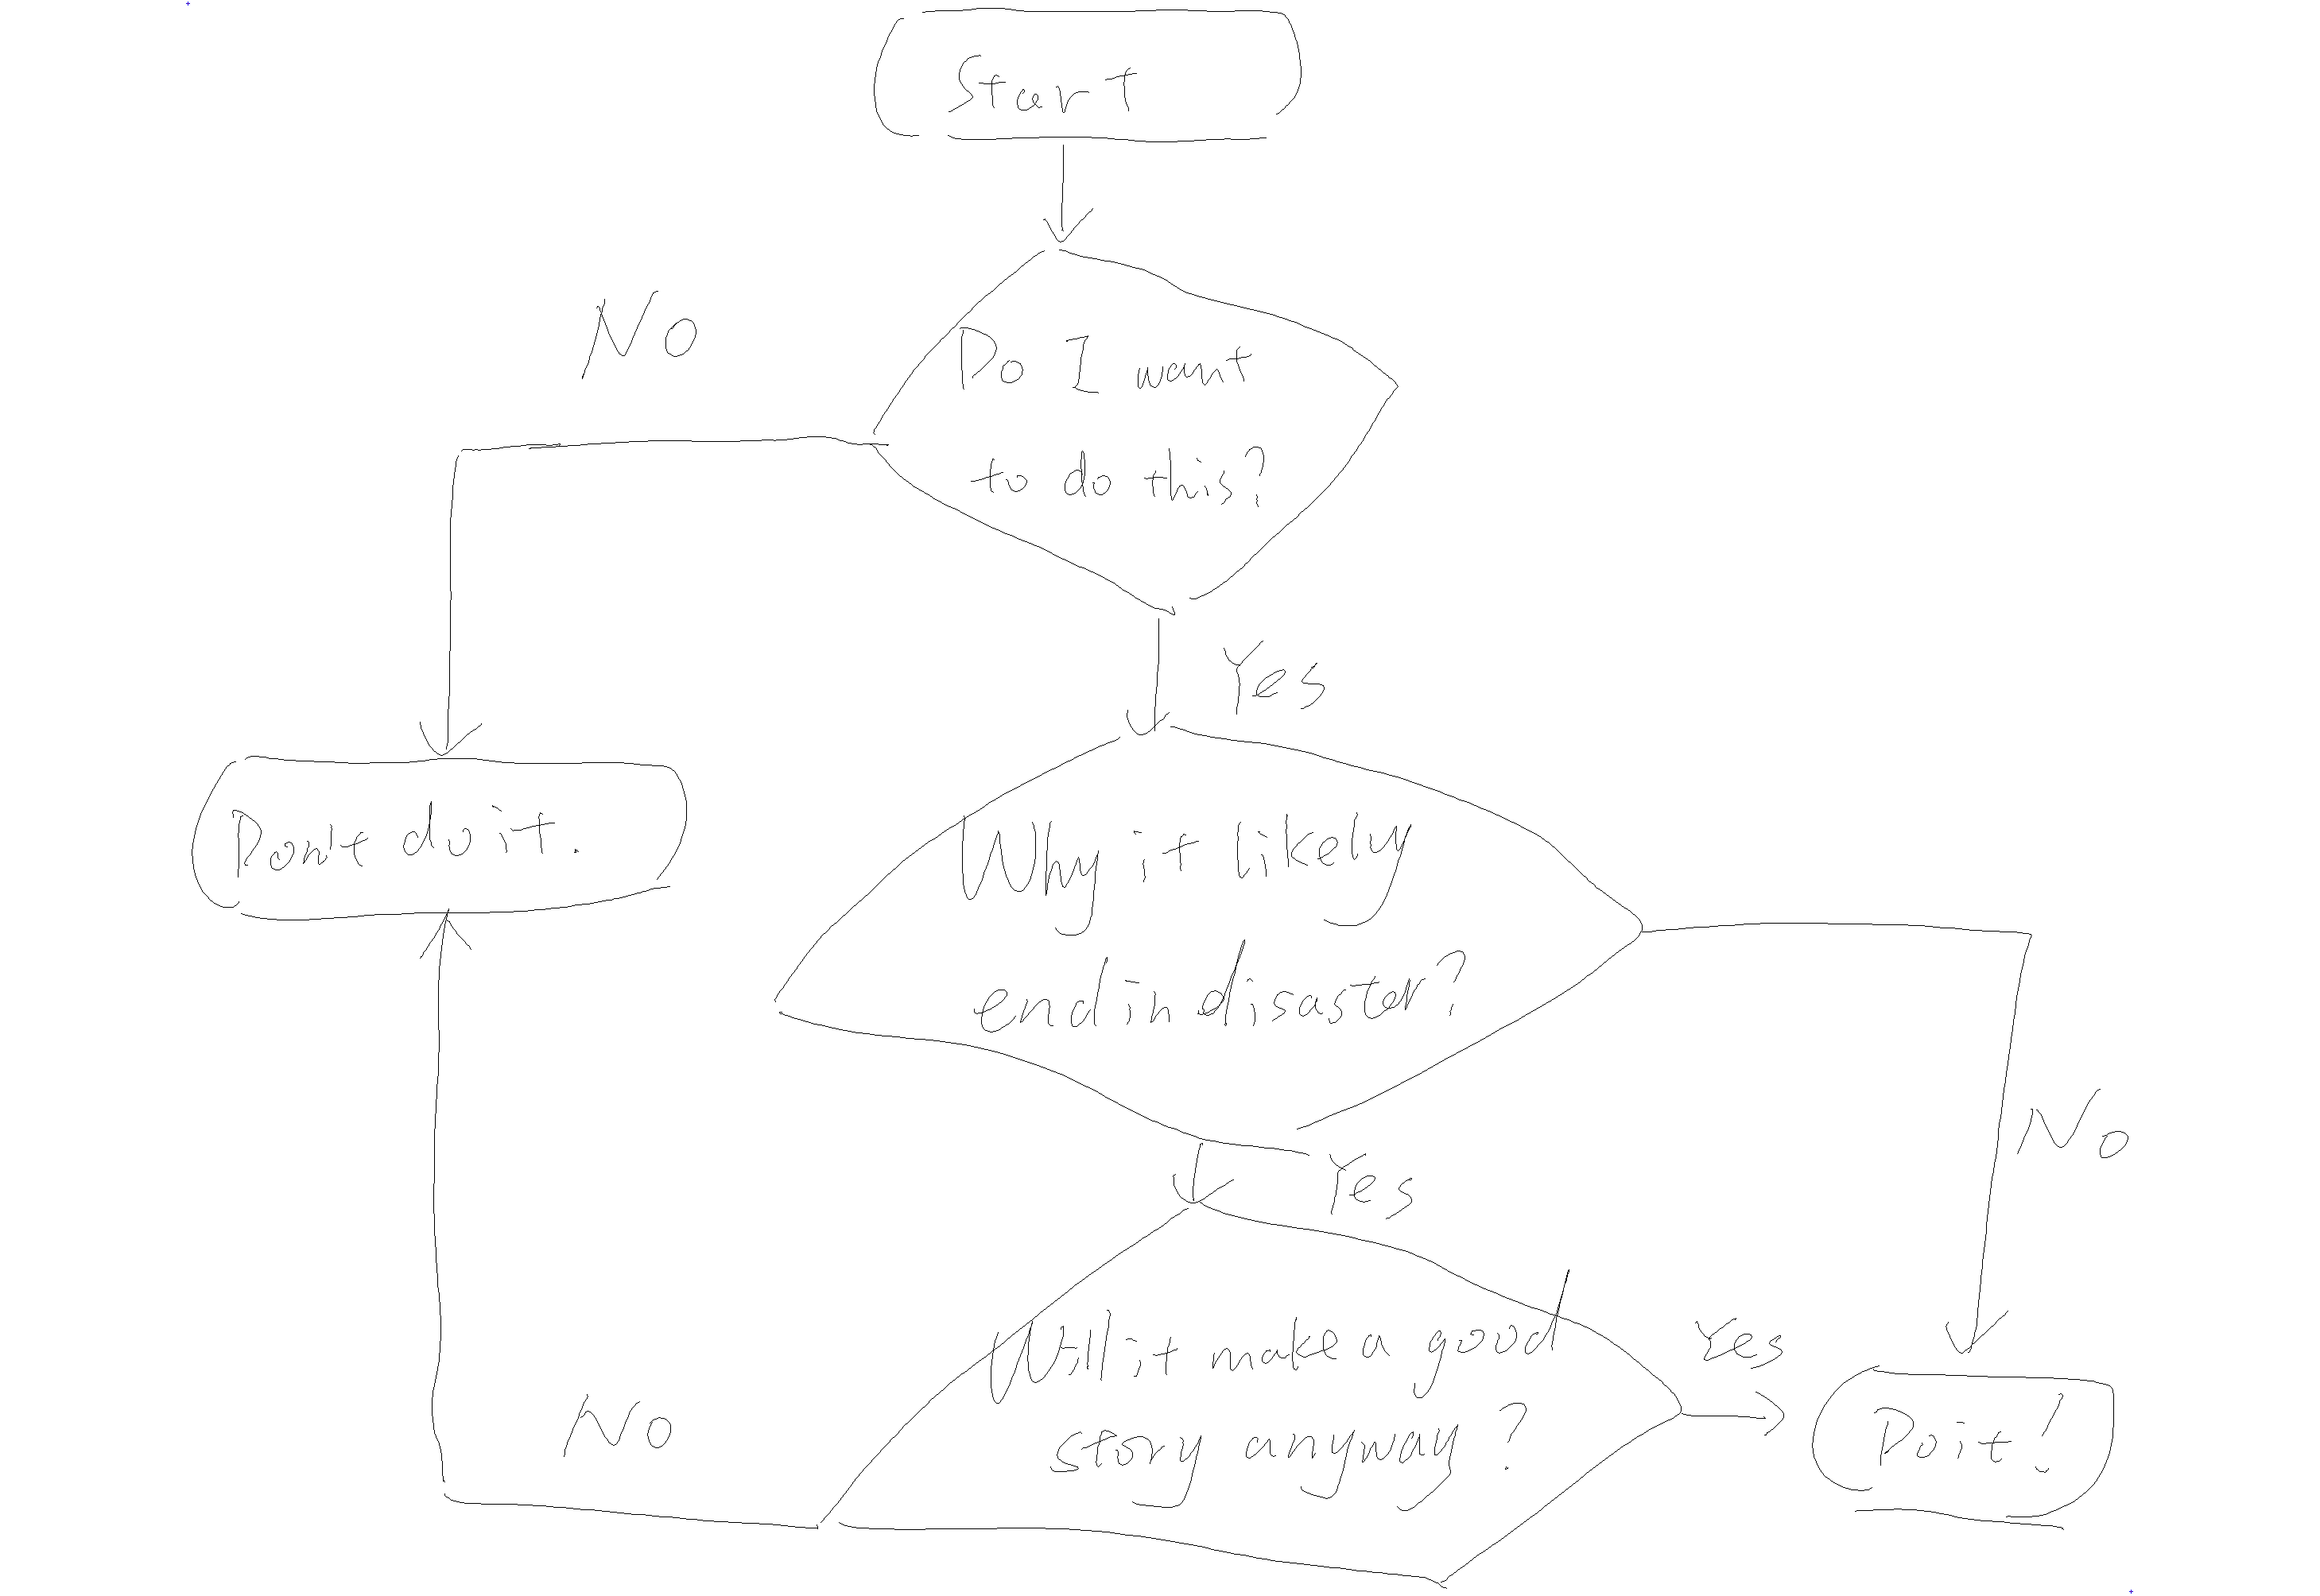 Start
No
Do I want
to do this?
Yes
Dont do it.
Why it likely
end in disaster?
No
Yes
Will it make a good
story anyway?
Yes
No
Do it!